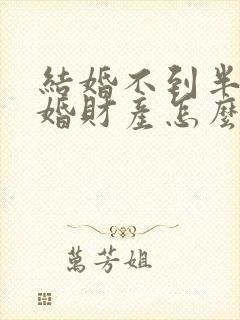 結婚不到半
婚財產怎麼
萬芳姐